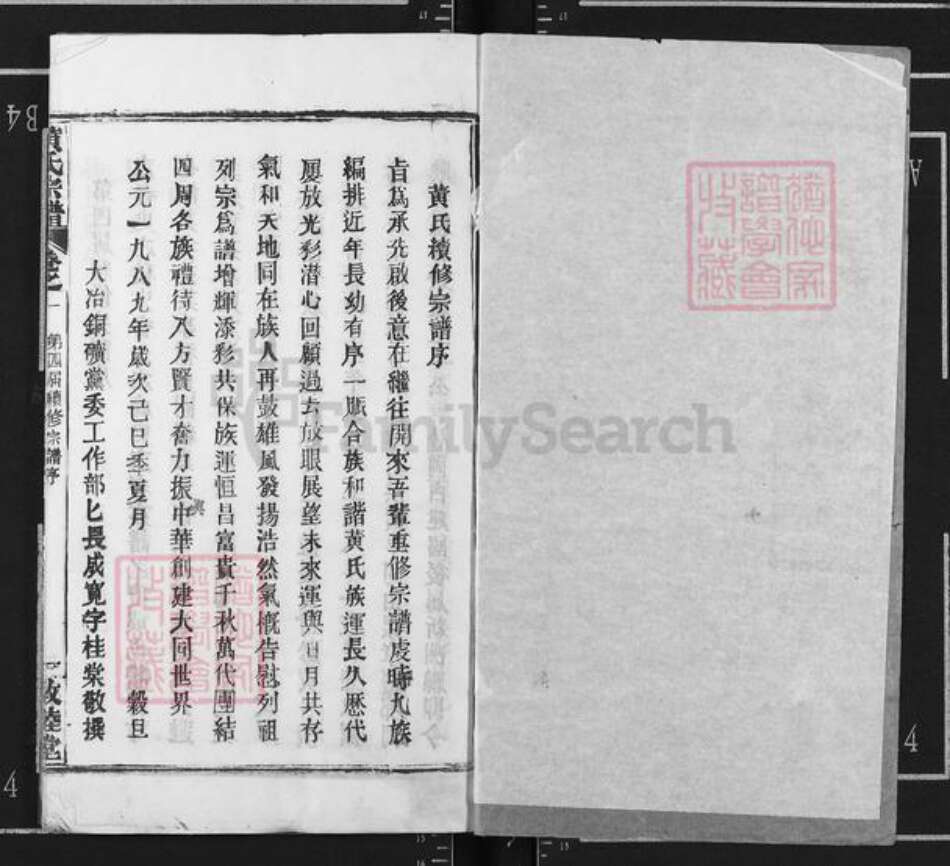 黃氏續修宗譜序
旨爲承先啟後意在繼往開來吾輩重修宗譜虔時九族
編排近年長幼有序一脈合族和諧黃氏族運長久歷代
愿放光彩潜心回顧過去放眼展望未來運與日月共存
氣和天地同在族人再鼓雄風發揚浩然氣慨告慰列祖
列宗爲譜增輝添彩共保族運恒昌富貴千秋萬代團結
四周各族禮待八方賢才奮力振興中華創建大同世界
公元一九八九年歲次己巳季夏月 穀旦
大冶銅礦黨委工作部匕長成寬字桂棠敬撰
黃氏宗譜 卷之一 第四屆續修宗譜序 敦睦堂
譜學會
收藏
FamilySearch
B4
A
4
4